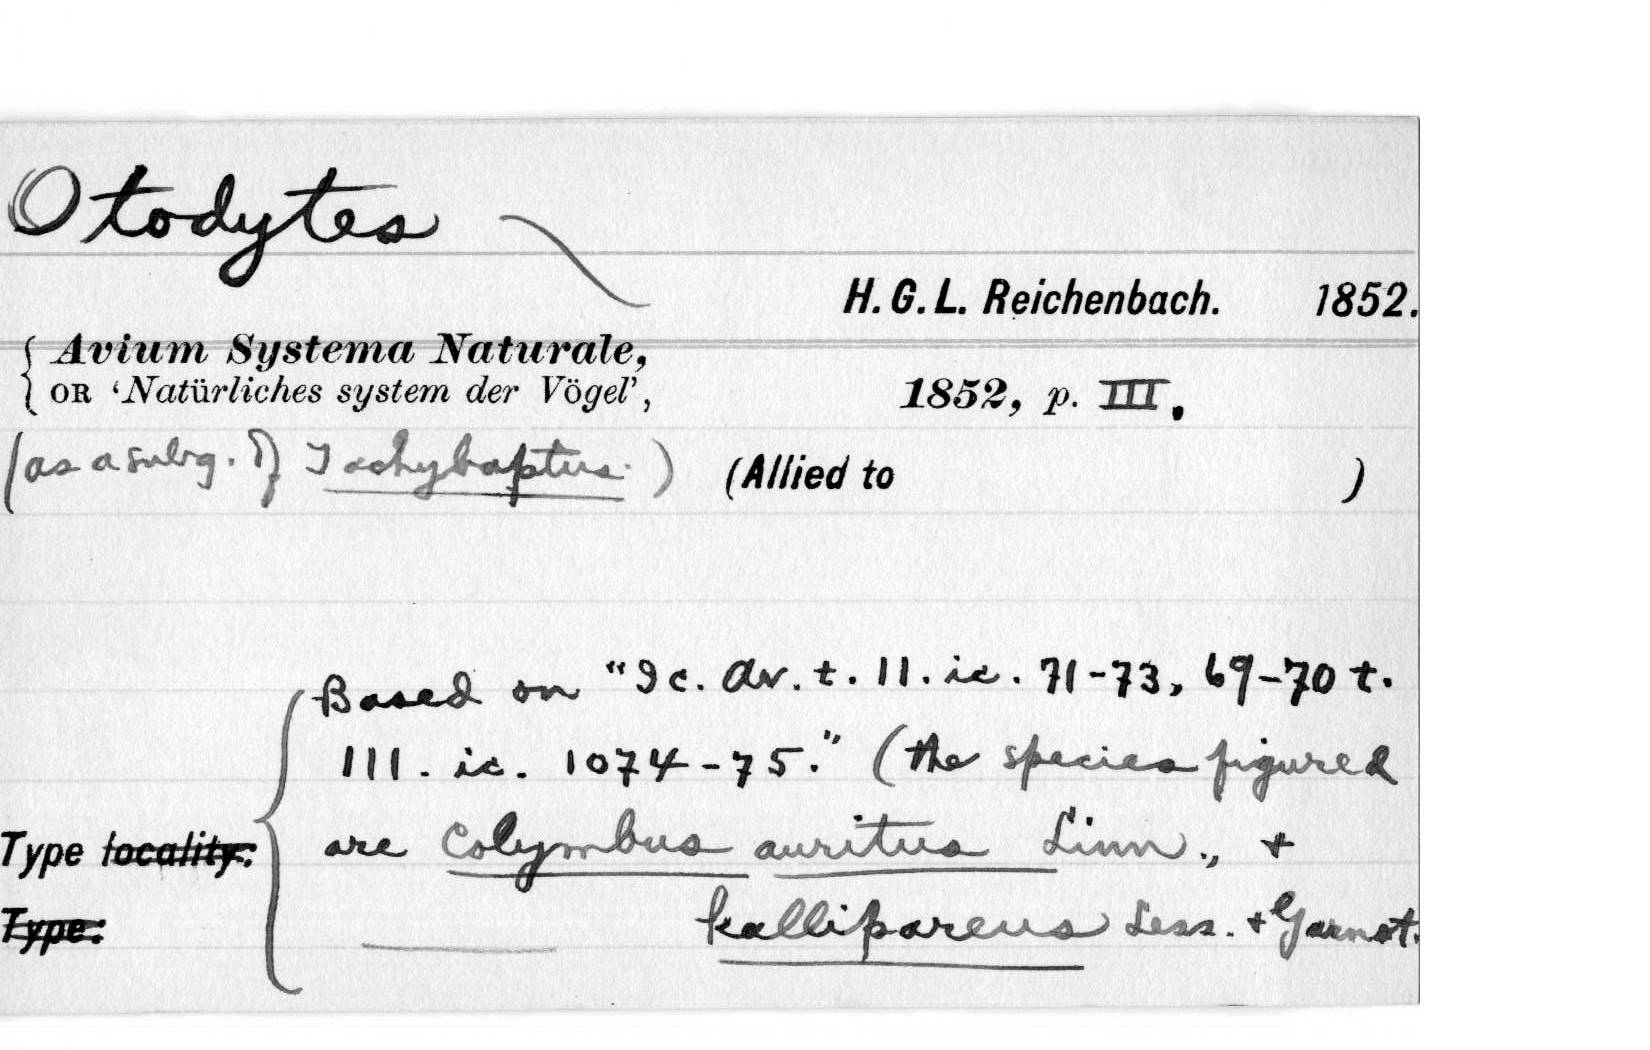 Otodytes
H. G. L. Reichenbach. 1852.
Avium Systema Naturale,
OR ‘Natürliches system der Vögel’, 1852, p. III.
(as a subg. of Tachybaptus.) (Allied to )
Based on "Ic. Av. t. II. ic. 71-73, 69-70 t.
III. ic. 1074-75." (the species figured
Type locality: are Colymbus auritus Linn., +
Type: kallipareus Less. + Garnot.